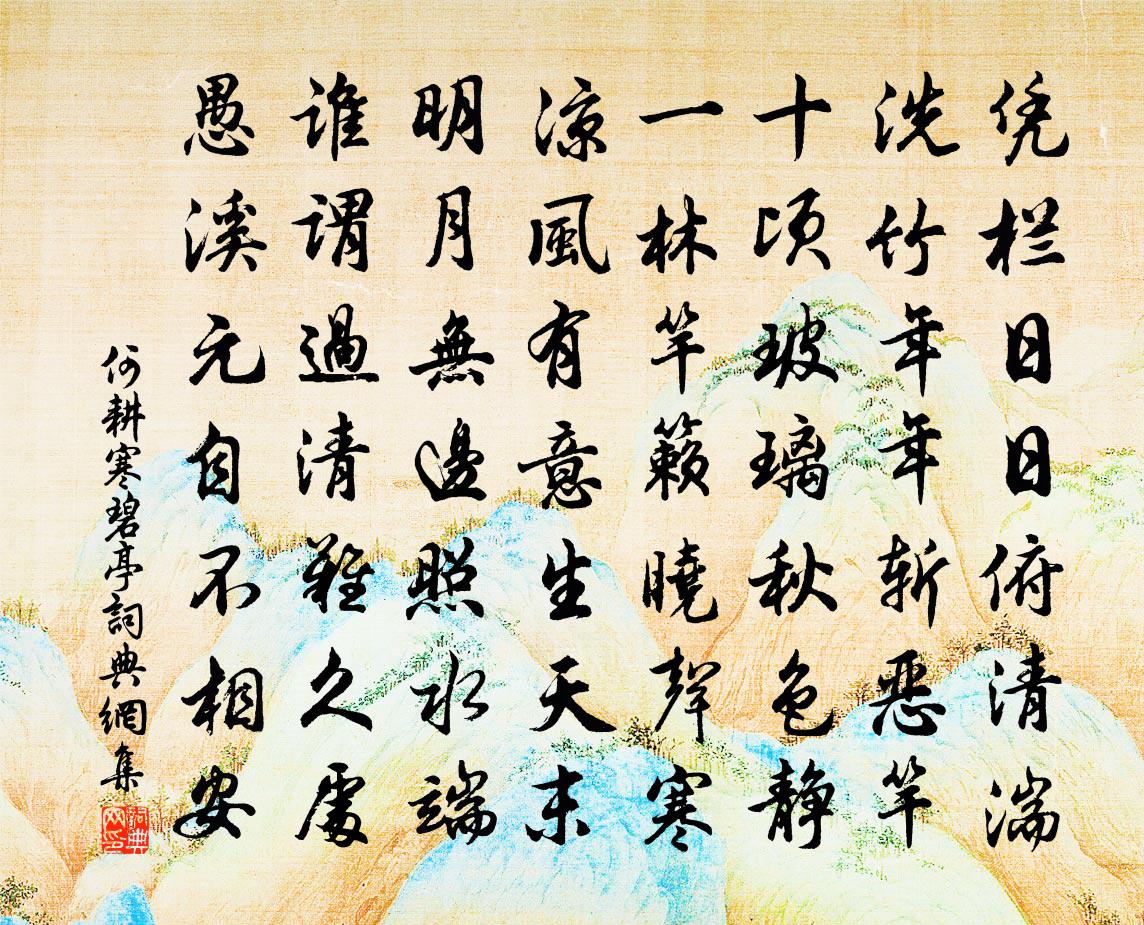 凭栏日日俯清湍
洗竹年年斩恶竿
十顷玻璃秋色静
一林竽籁晓聲寒
凉風有意生天末
明月無邊照水端
谁谓過清難久處
愚溪元自不相安
何耕寒碧亭詞典網集
詞典網印